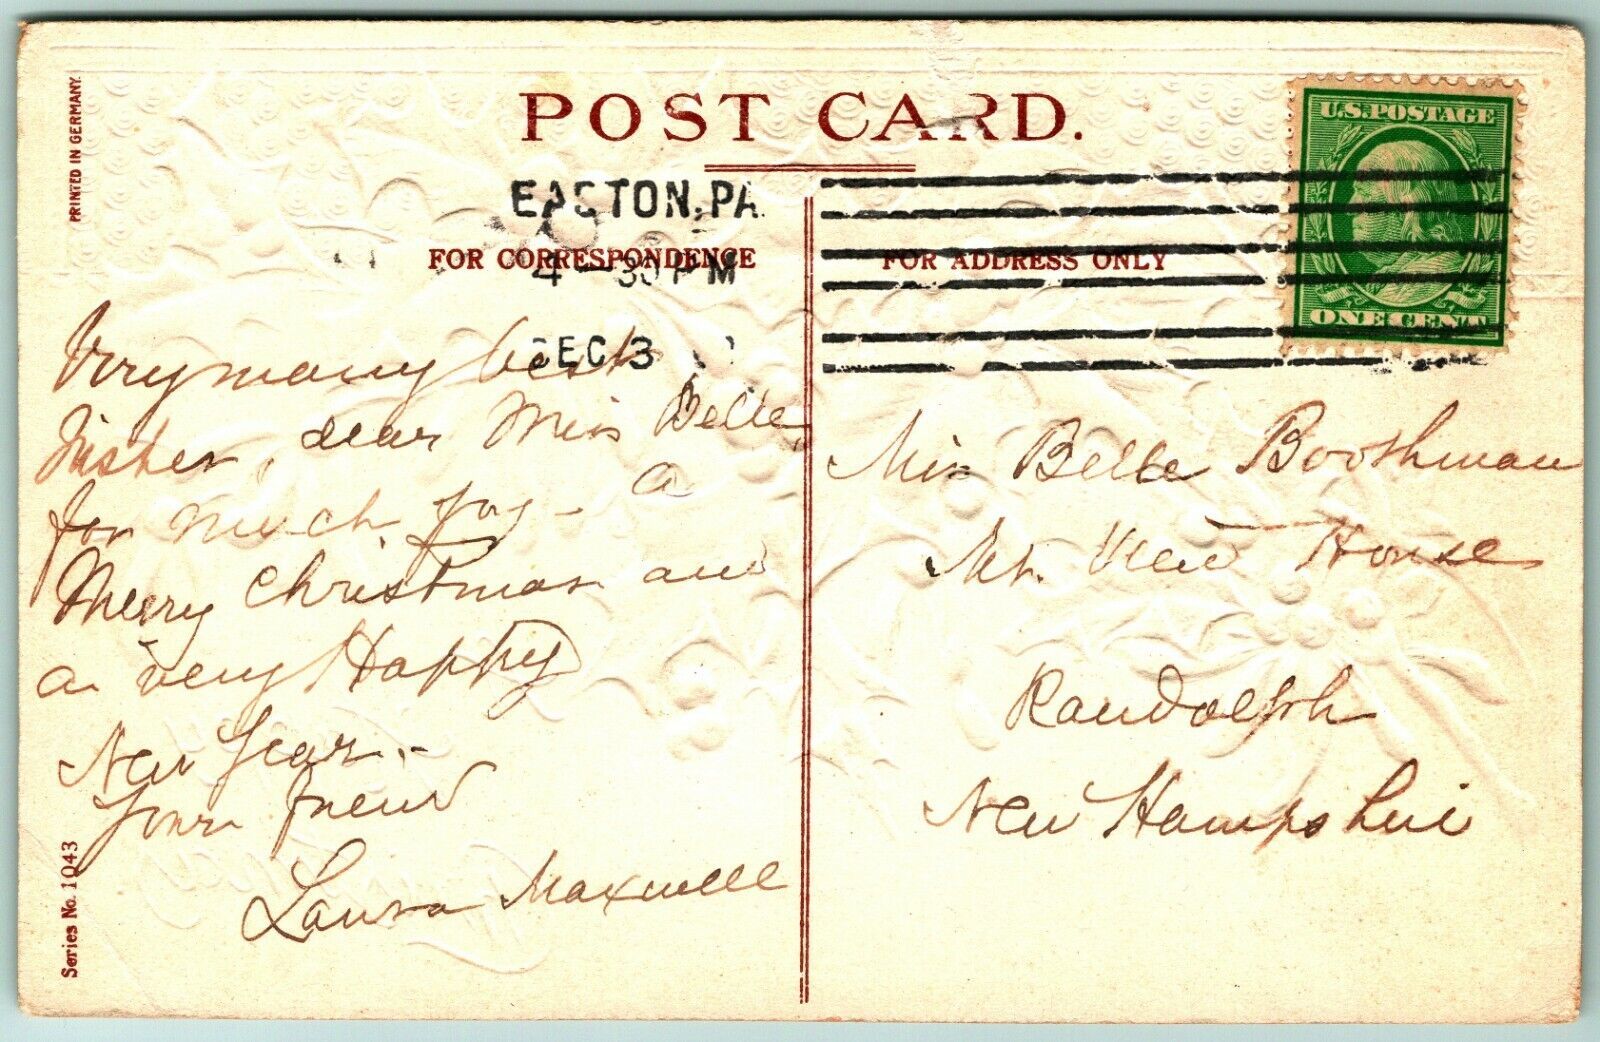 POST CARD.
PRINTED IN GERMANY.
EASTON, PA
4 - 30 PM
DEC 3
U.S. POSTAGE
ONE CENT
FOR CORRESPONDENCE
FOR ADDRESS ONLY
Very many best
Wishes, dear Miss Belle,
for much joy - a
Merry Christmas and
a very Happy
New Year.-
Your friend
Laura Maxwell
Series No. 1043
Miss Belle Boothman
Mt. View House
Randolph
New Hampshire